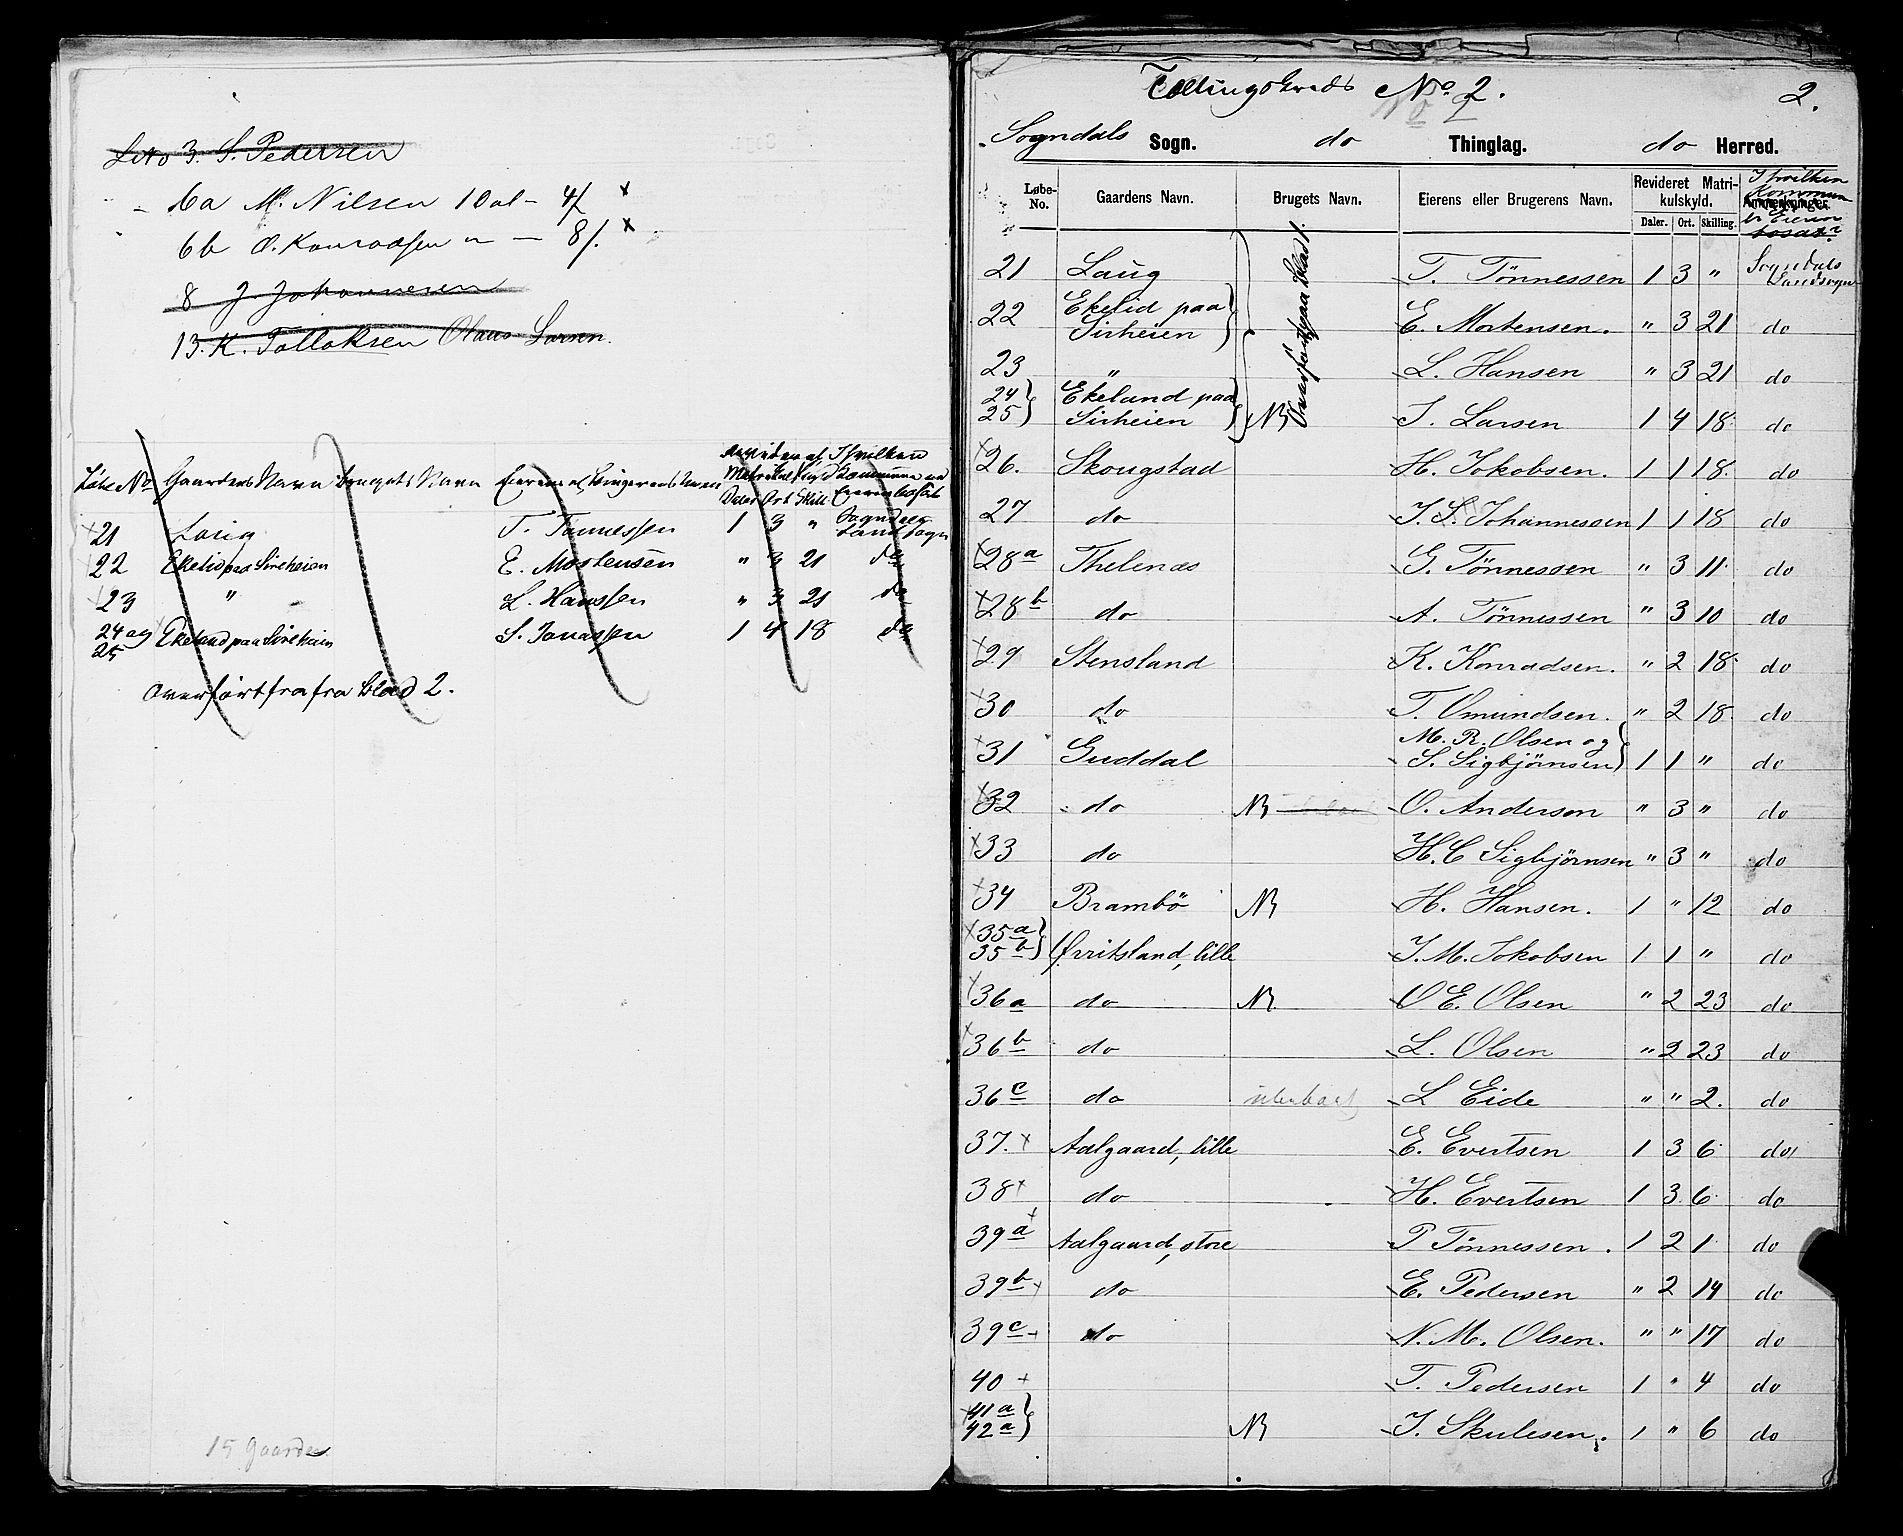 Løbe No 3. S. Pedersen
6a M. Nilsen 10 al - 4/ x
6b O. Konradsen " — 8/. x
8 J. Johannesen
13. K. Tollaksen Olaus Larsen.
Løbe No Gaardens Navn Brugets Navn Eierens el. Brugerens Navn Daler Ort Skill
21 Laug T. Tønnessen 1 3 " Sogndals Landsogn
22 Ekelid paa Sireheien E. Mortensen " 3 21 do
23 " L. Hanssen " 3 21 do
24 og 25 Ekeland paa Sireheien S. Jonassen 1 4 18 do
Overført fra fra blad 2.
15 gaarde
Tællingskreds No. 2. 2.
Sogndals Sogn. do Thinglag. do Herred.
Løbe-No. Gaardens Navn. Brugets Navn. Eierens eller Brugerens Navn. Revideret Matrikulskyld. Anmerkninger. I hvilken Kommune er Eieren bosat?
Daler. Ort. Skilling.
Overført paa blad 1.
21 Laug T. Tønnessen 1 3 " Sogndals Landsogn
22 Ekelid paa Sirheien E. Mortensen. " 3 21 do
23 " L. Hansen " 3 21 do
24 25 Ekeland paa Sirheien NB S. Larsen 1 4 18 do
26. Skougstad H. Jokobsen. 1 1 18 do
27 do J. S. Johannessen 1 1 18 do
28a Thelenæs G. Tønnessen " 3 11 do
28b do A. Tønnessen " 3 10 do
29 Stensland K. Konradsen. " 2 18 do
30 do T. Omundsen. " 2 18 do
31 Guddal M. R. Olsen og S. Sigbjörnsen 1 1 " do
32 do NB O. Anderson " 3 " do
33 do H. C Sigbjörnsen " 3 " do
34 Brambö NB H. Hansen. 1 " 12 do
35a 35b Ørritsland, lille J. M. Jokobsen 1 1 " do
36a do NB O E. Olsen " 2 23 do
36b do L. Olsen " 2 23 do
36c do L Eide " " 2. do
37. x Aalgaard, lille E. Evertsen 1 3 6 do
38 x do H. Evertsen 1 3 6 do
39a x Aalgaard, store P Tönnessen. 1 2 1 do
39b x do E. Pedersen " 2 14 do
39c x do N. M. Olsen. " " 17 do
40 x T. Pedersen 1 " 4 do
41a 42a NB J. Skulesen. 1 " 6 do